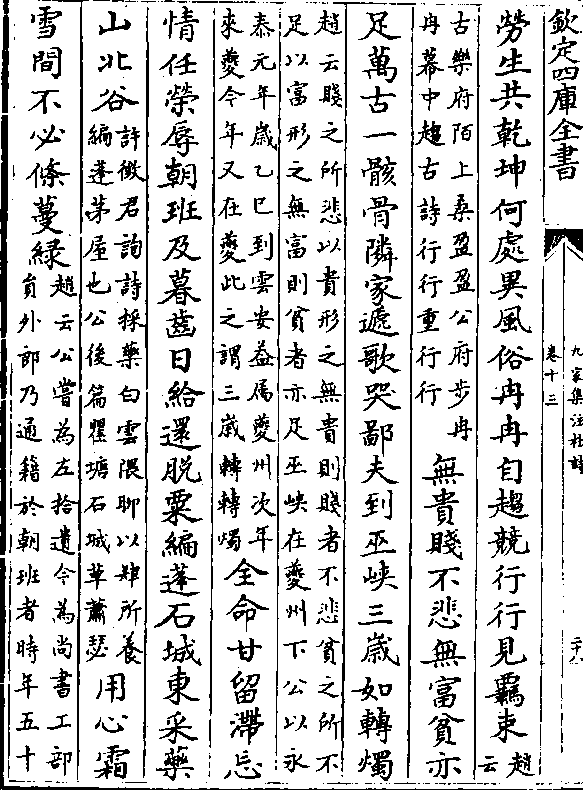 欽定四庫全書
九家集注杜詩
卷十三
勞生共乾坤何處異風俗冉冉自趨競行行見羈束趙云
古樂府陌上桑盈盈公府步冉
冉幕中趨古詩行行重行行
無貴賤不悲無富貧亦
足萬古一骸骨隣家遞歌哭鄙夫到巫峽三歲如轉燭
趙云賤之所悲以貴形之無貴則賤者不悲貧之所不
足以富形之無富則貧者亦足巫峽在夔州下公以永
泰元年歲乙巳到雲安益屬夔州次年
來夔今年又在夔此之謂三歲轉轉燭
全命甘留滯忘
情任榮辱朝班及暮齒日給還脫粟編蓬石城東采藥
山北谷
許徵君詢詩採藥白雲隈聊以肆所養
編蓬茅屋也公後篇瞿塘石城草蕭瑟
用心霜
雪間不必條蔓緑
趙云公嘗為左拾遺今為尚書工部
員外郎乃通籍於朝班者時年五十